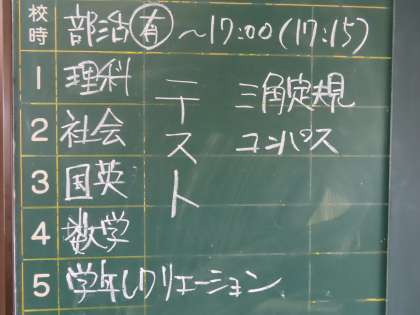 校時 部活有 ～17:00(17:15)
1 理科 テスト 三角定規
2 社会 コンパス
3 国英
4 数学
5 学年レクリエーション